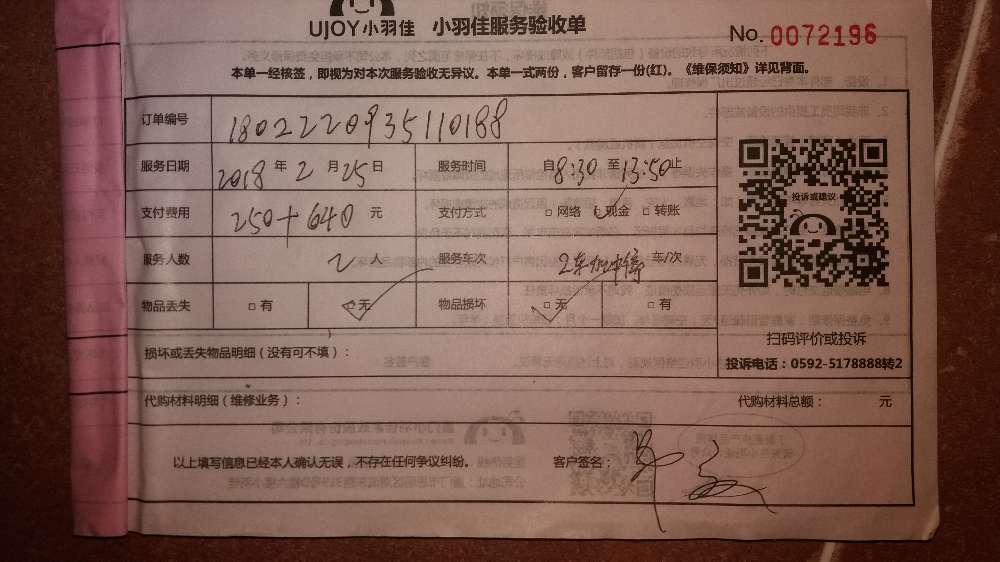 UJOY小羽佳 小羽佳服务验收单
No. 0072196
本单一经核签，即视为对本次服务验收无异议。本单一式两份，客户留存一份(红)。《维保须知》详见背面。
订单编号 1802220935110188
服务日期 2018 年 2 月 25 日 服务时间 自 8:30 至 13:50 止
支付费用 250+640 元 支付方式 □ 网络 □ 现金 □ 转账
服务人数 2 人 服务车次 2车 车/次
物品丢失 □ 有 □ 无 物品损坏 □ 无 □ 有
投诉或建议
扫码评价或投诉
投诉电话：0592-5178888转2
损坏或丢失物品明细（没有可不填）：
代购材料明细（维修业务）： 代购材料总额： 元
以上填写信息已经本人确认无误，不存在任何争议纠纷。 客户签名：